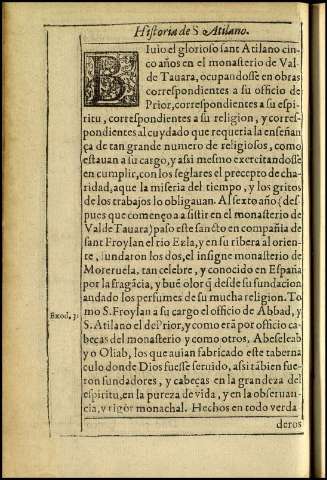 Historia de S Atilano.
BIuio el glorioso sant Atilano cin-
co años en el monasterio de Val
de Tauara, ocupandosse en obras
correspondientes a su officio de
Prior, correspondientes a su espi-
ritu, correspondientes a su religion, y corres-
pondientes al cuydado que requeria la enseñan
ça de tan grande numero de religiosos, como
estauan a su cargo, y assi mesmo exercitandosse
en cumplir, con los seglares el precepto de cha-
ridad, aque la miseria del tiempo, y los gritos
de los trabajos lo obligauan. Al sexto año (des
pues que començo a assistir en el monasterio de
Val de Tauara) paso este sancto en compañia de
sant Froylan el rio Ezla, y en su ribera al orien-
te, fundaron los dos, el insigne monasterio de
Moreruela, tan celebre, y conocido en España
por la fragãcia, y buẽ olor q̃ desde su fundacion
andado los perfumes de su mucha religion. To
mo S. Froylan a su cargo el officio de Abbad, y
S. Atilano el de Prior, y como erã por officio ca-
Exod. 3:
beças del monasterio y como otros, Abeseleab
y o Oliab, los que auian fabricado este taberna
culo donde Dios fuesse seruido, assi tãbien fue-
ron fundadores, y cabeças en la grandeza del
espiritu, en la pureza de vida, y en la obseruan-
cia, y rigor monachal. Hechos en todo verda
deros